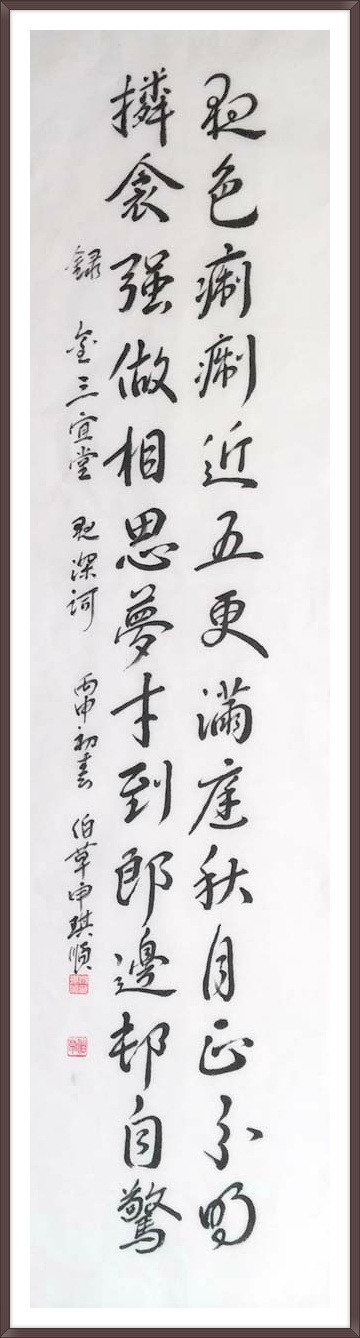 夜色痸痸近五更滿庭秋月正分明
撛衾强做相思夢才到郎邊却自驚
錄 金三宜堂 夜深詞 丙申初春 伯草申琪順